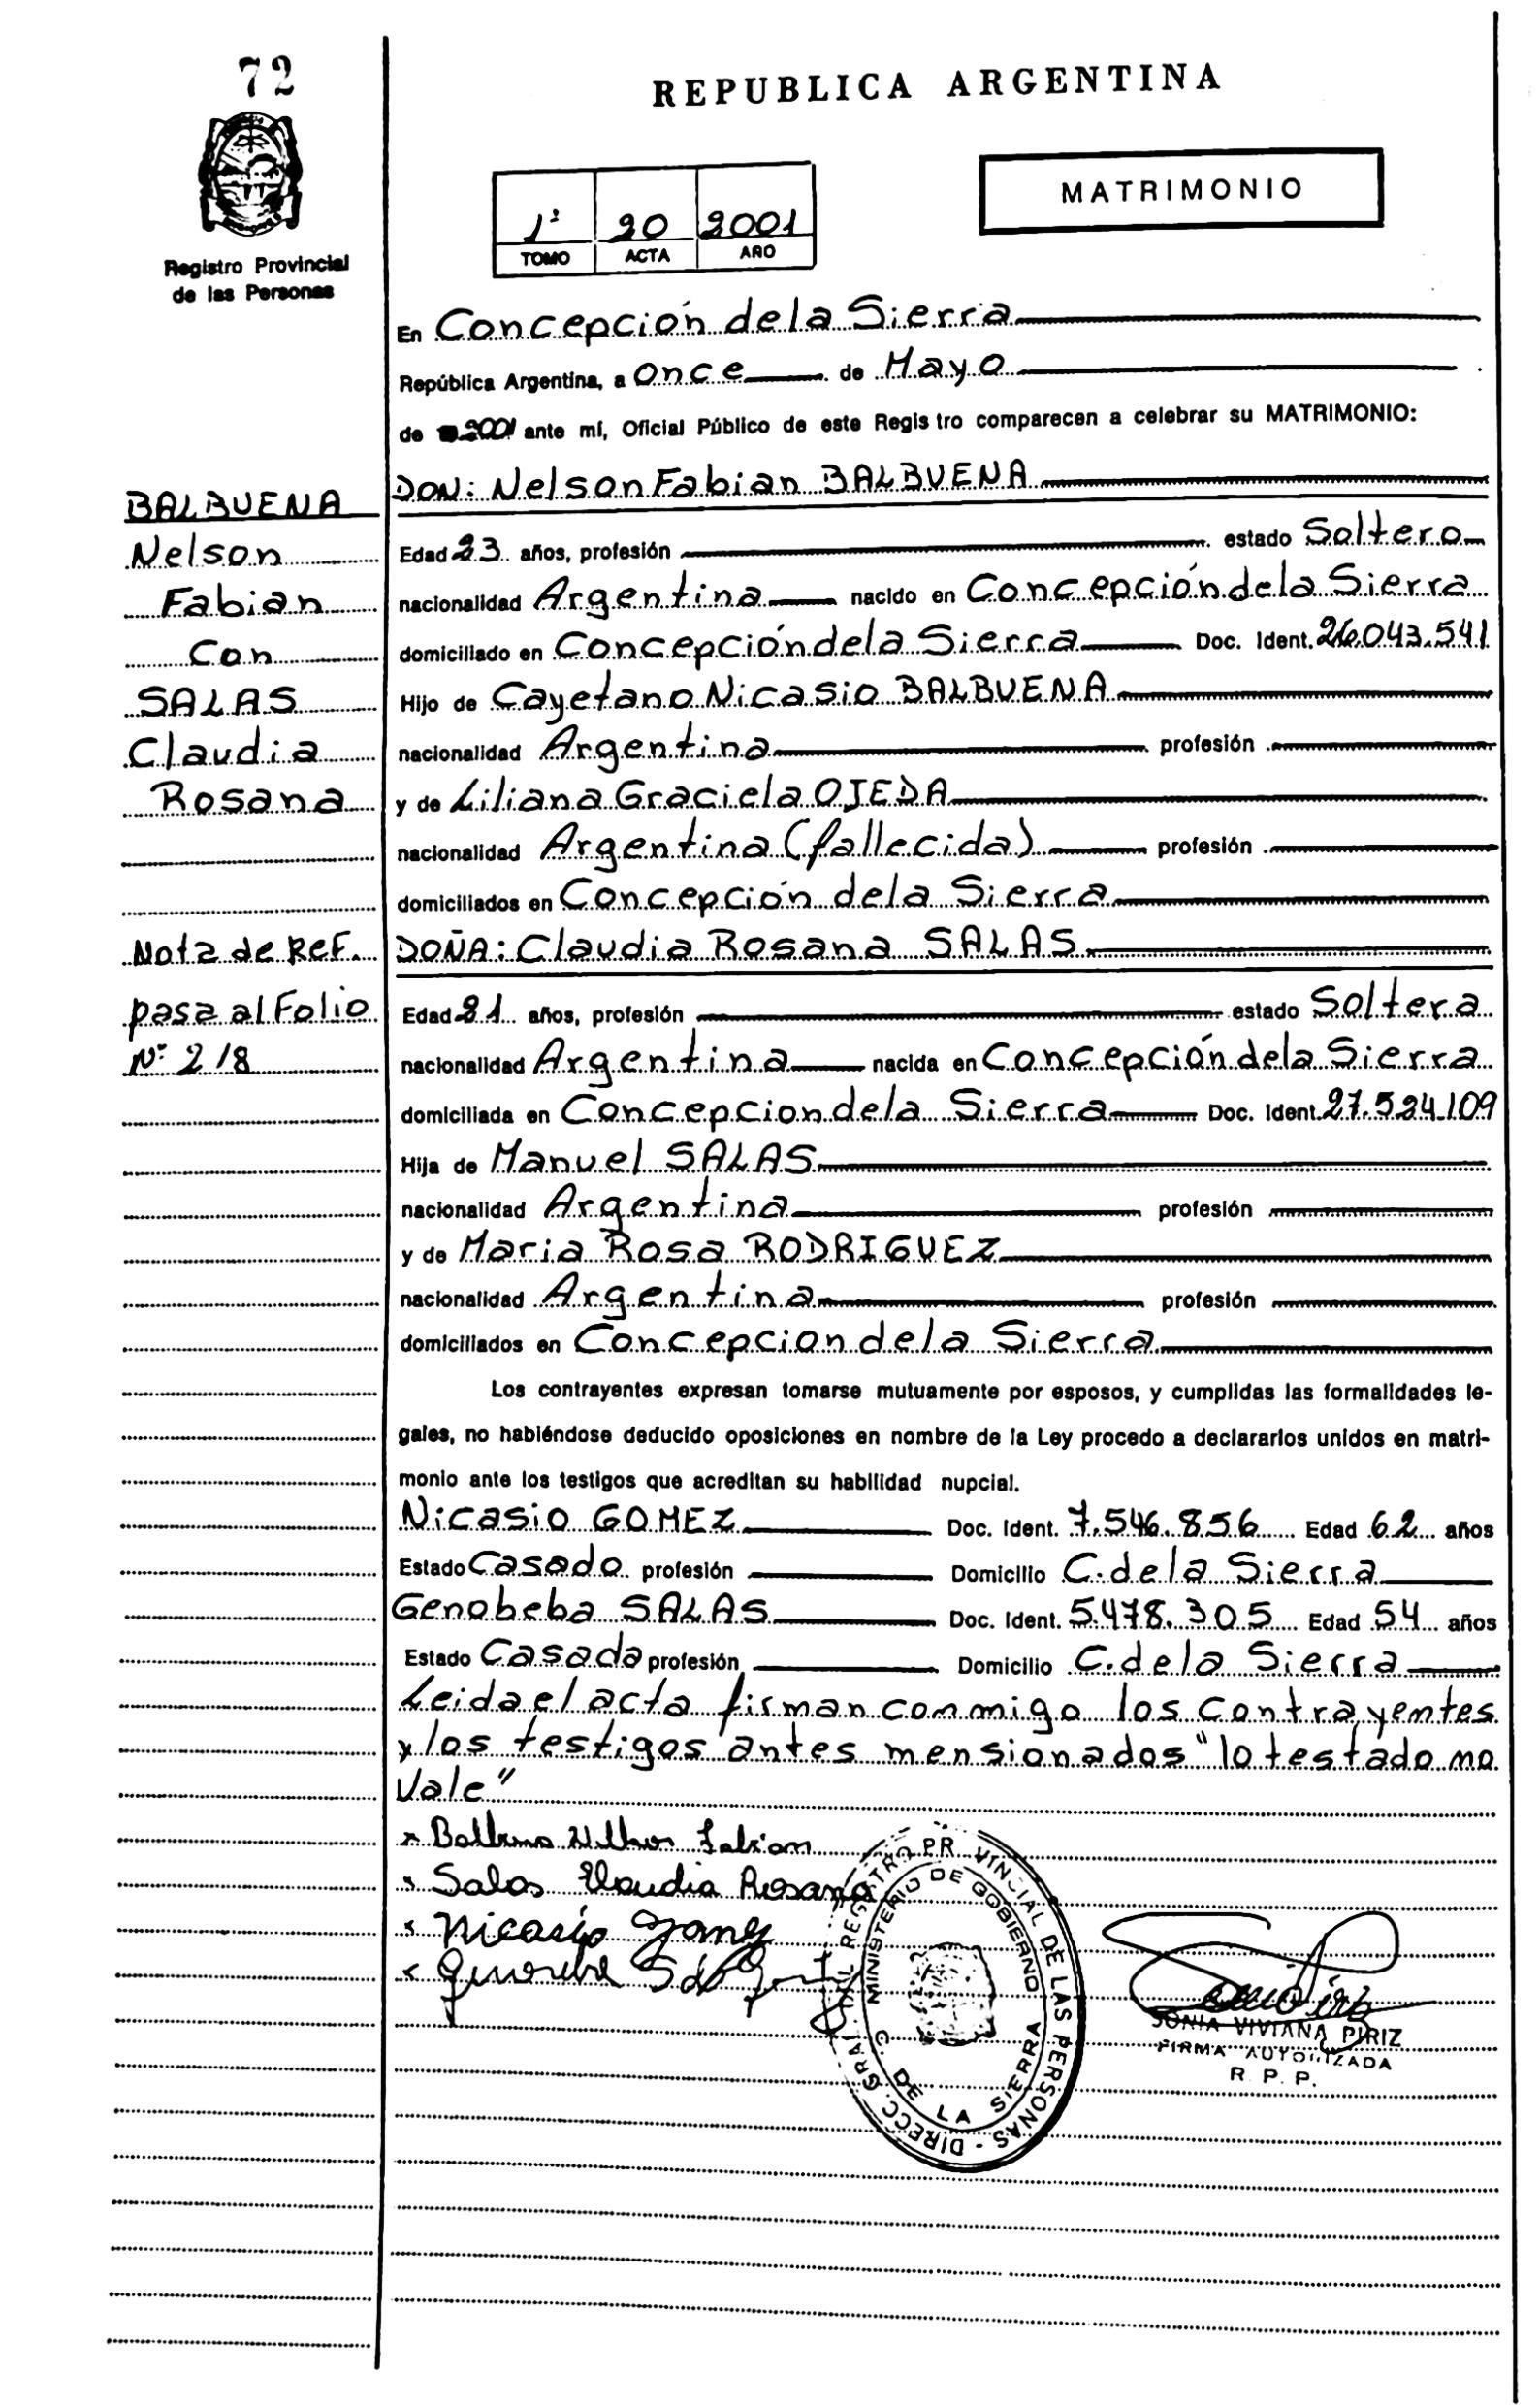 72
REPUBLICA ARGENTINA
MATRIMONIO
1º 20 2001
TOMO ACTA AÑO
Registro Provincial
de las Personas
En Concepción de la Sierra
República Argentina, a Once de Mayo
de 2001 ante mí, Oficial Público de este Regis tro comparecen a celebrar su MATRIMONIO:
DON: Nelson Fabian BALBUENA
BALBUENA
Nelson
Fabian
Con
SALAS
Claudia
Rosana
Edad 23 años, profesión estado Soltero
nacionalidad Argentina nacido en Concepción de la Sierra
domiciliado en Concepción de la Sierra Doc. Ident. 26.043.541
Hijo de Cayetano Nicasio BALBUENA
nacionalidad Argentina profesión
y de Liliana Graciela OJEDA
nacionalidad Argentina (fallecida) profesión
domiciliados en Concepción de la Sierra
DOÑA: Claudia Rosana SALAS
Nota de REF.
pasa al Folio
Nº 218
Edad 21 años, profesión estado Soltera
nacionalidad Argentina nacida en Concepción de la Sierra
domiciliada en Concepcion de la Sierra Doc. Ident. 27.524.109
Hija de Manuel SALAS
nacionalidad Argentina profesión
y de Maria Rosa RODRIGUEZ
nacionalidad Argentina profesión
domiciliados en Concepcion de la Sierra
Los contrayentes expresan tomarse mutuamente por esposos, y cumplidas las formalidades le-
gales, no habiéndose deducido oposiciones en nombre de la Ley procedo a declararlos unidos en matri-
monio ante los testigos que acreditan su habilidad nupcial.
Nicasio GOMEZ Doc. Ident. 7.546.856 Edad 62 años
Estado Casado profesión Domicilio C. de la Sierra
Genobeba SALAS Doc. Ident. 5.478.305 Edad 54 años
Estado Casada profesión Domicilio C. de la Sierra
Leida el acta firman conmigo los contrayentes
y los testigos antes mensionados "lo testado no
Vale"
Fabian
Salas Claudia Rosana
Nicasio Gomez
DIRECC. GRAL. DEL REGISTRO PROVINCIAL DE LAS PERSONAS -
MINISTERIO DE GOBIERNO
C. DE LA SIERRA
SONIA VIVIANA PIRIZ
FIRMA AUTORIZADA
R. P. P.